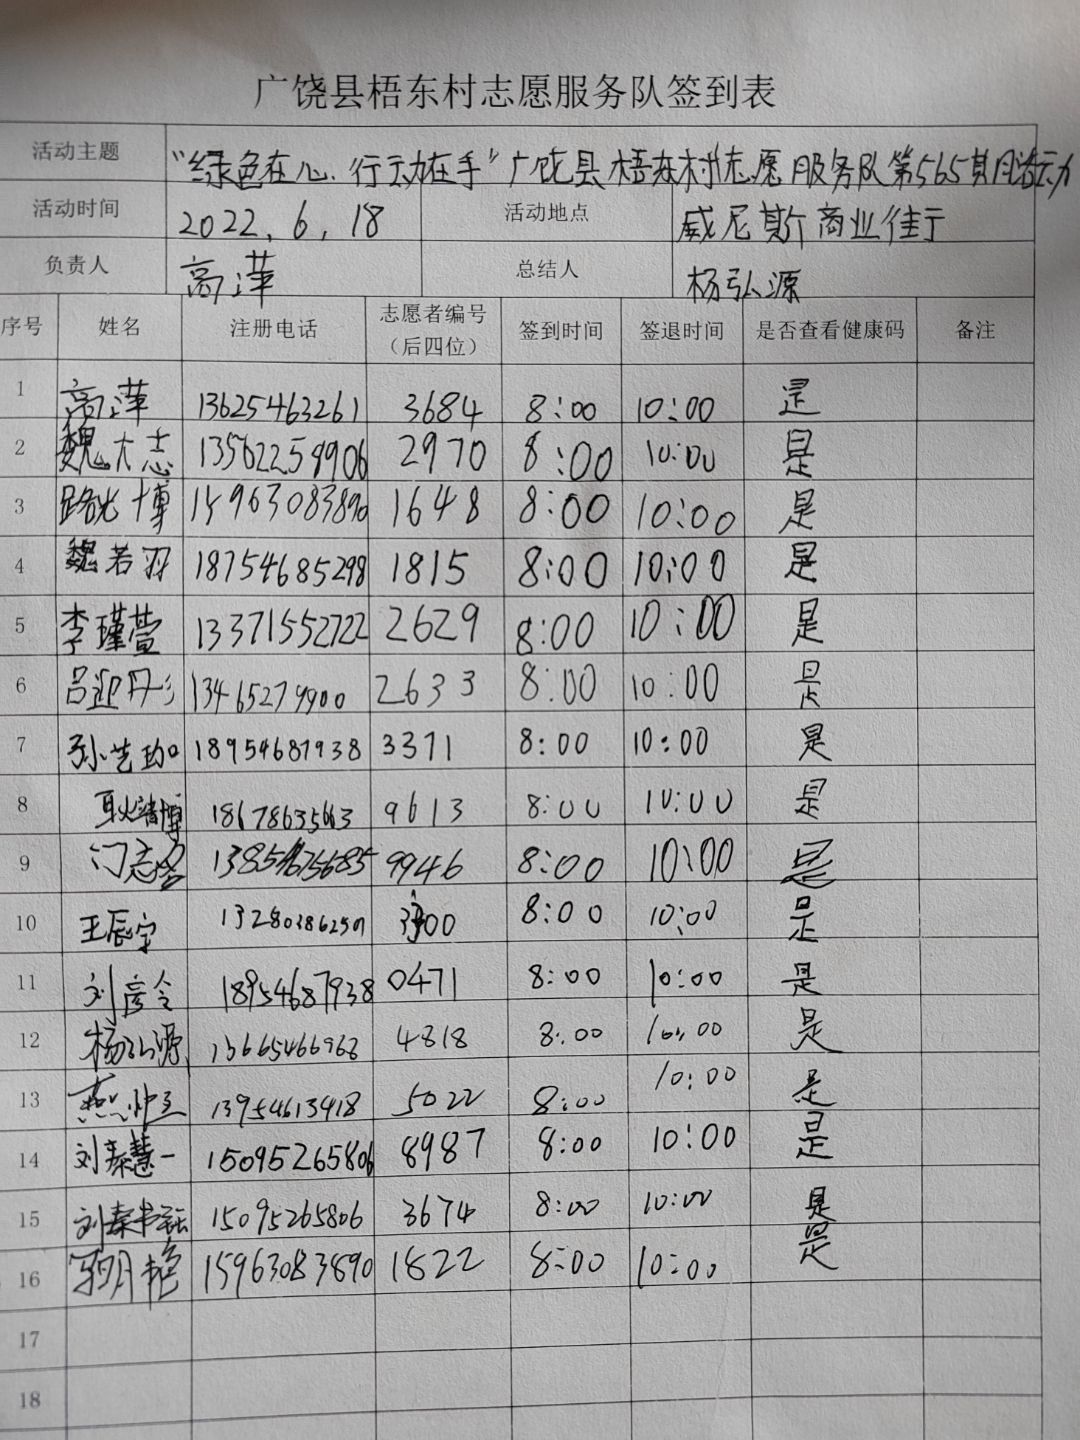 广饶县梧东村志愿服务队签到表
活动主题 “绿色在心.行动在手”广饶县梧东村志愿服务队第565期活动
活动时间 2022.6.18 活动地点 威尼斯商业街
负责人 高萍 总结人 杨弘源
序号 姓名 注册电话 志愿者编号（后四位） 签到时间 签退时间 是否查看健康码 备注
1 高萍 13625463261 3684 8:00 10:00 是
2 魏大志 13562259906 2970 8:00 10:00 是
3 路光博 15963083890 1648 8:00 10:00 是
4 魏若羽 18754685298 1815 8:00 10:00 是
5 李瑾萱 13371552722 2629 8:00 10:00 是
6 吕迎丹 13465279900 2633 8:00 10:00 是
7 孙艺珈 18954687938 3371 8:00 10:00 是
8 耿靖博 18678635663 9613 8:00 10:00 是
9 门志 9946 8:00 10:00 是
10 王辰宇 8:00 10:00 是
11 刘彦令 18954687938 0471 8:00 10:00 是
12 杨弘源 13665466968 4818 8:00 10:00 是
13 燕 13954613418 5022 8:00 10:00 是
14 刘秦慧一 15095265806 8987 8:00 10:00 是
15 刘秦 15095265806 3674 8:00 10:00 是
16 15963083890 1822 8:00 10:00 是
17
18